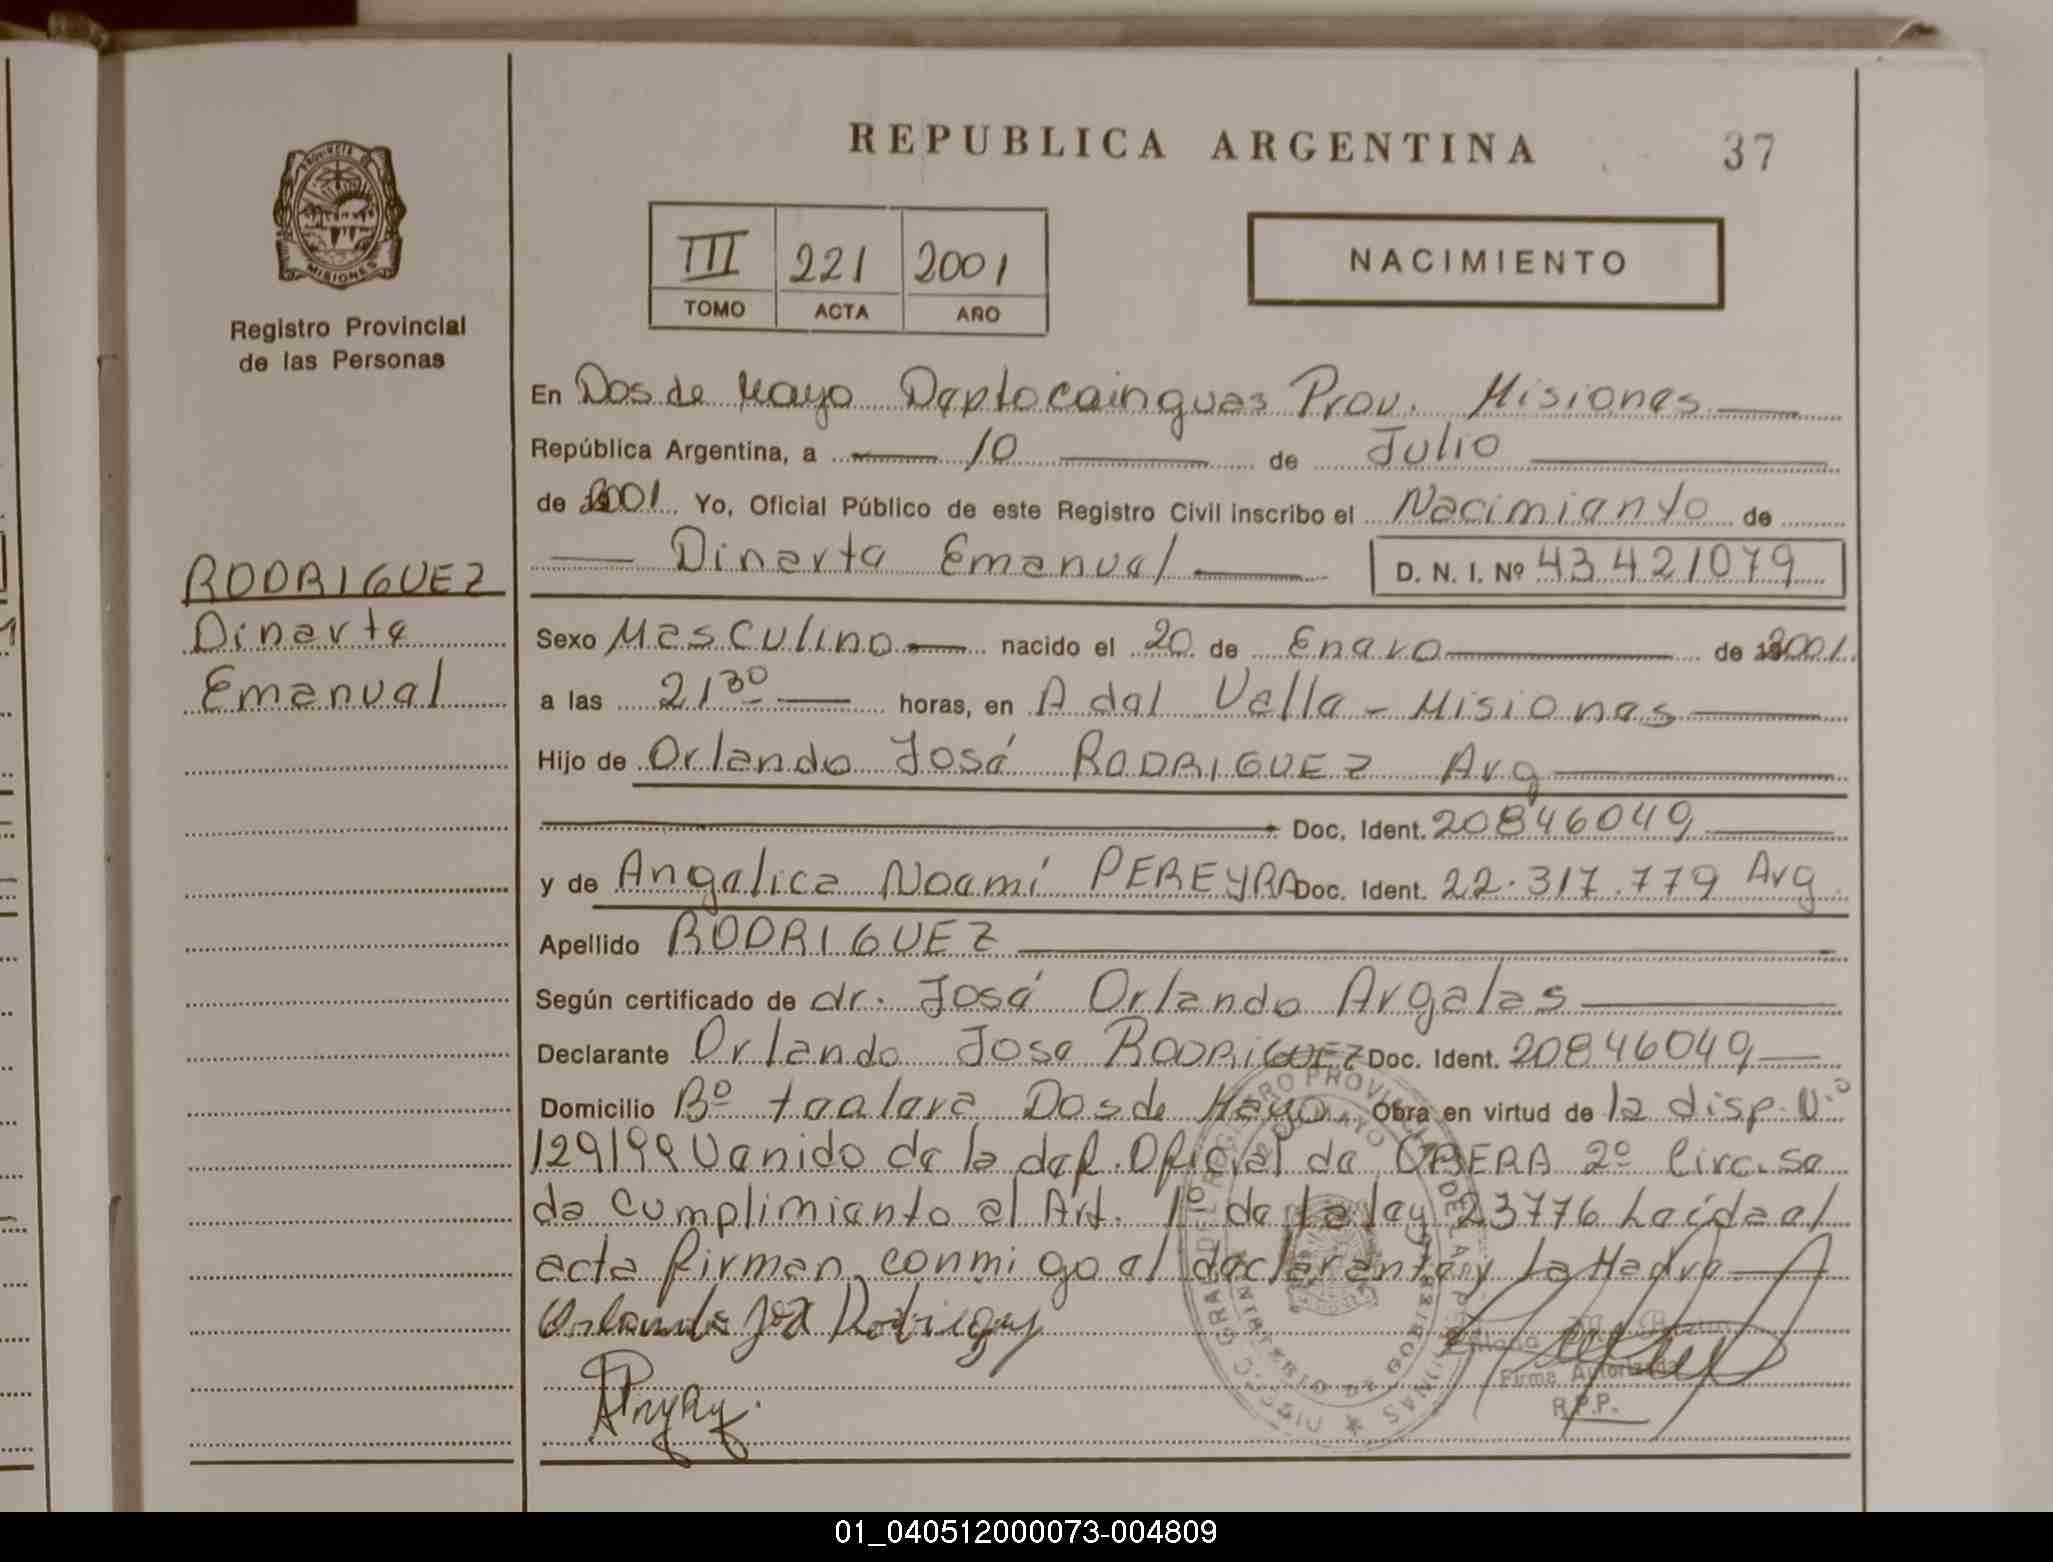 REPUBLICA ARGENTINA
37
PROVINCIA DE
MISIONES
Registro Provincial
de las Personas
III 221 2001
TOMO ACTA AÑO
NACIMIENTO
En Dos de Mayo Depto Cainguas Prov. Misiones
República Argentina, a 10 de Julio
de 2001 Yo, Oficial Público de este Registro Civil inscribo el Nacimiento de
Dinarte Emanuel D. N. I. Nº 43421079
RODRIGUEZ
Dinarte
Emanuel
Sexo Masculino nacido el 20 de Enero de 2001
a las 21 30 horas, en A del Valle - Misiones
Hijo de Orlando José RODRIGUEZ Arg
Doc. Ident. 20846049
y de Angelica Noemí PEREYRA Doc. Ident. 22.317.779 Arg
Apellido RODRIGUEZ
Según certificado de dr. José Orlando Argelas
Declarante Orlando Jose RODRiGUEZ Doc. Ident. 20846049
Domicilio Bº Dos de Mayo Obra en virtud de la disp. N.º
129199 Venido de la def. Oficial de OBERA 2º Circ. se
da cumplimiento al Art. 1º de la ley 23776 Leída el
acta firman conmigo el declarante y la Madre
Orlando José Rodriguez
Firma Autorizada
R.P.P.
01_040512000073-004809